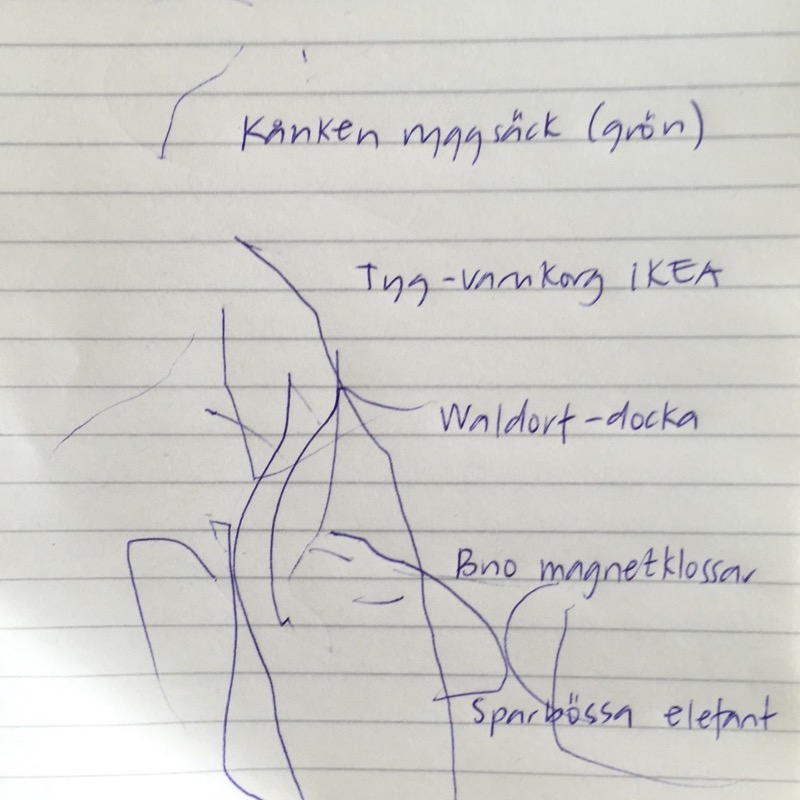 Kånken mggsäck (grön)
Tyg-varukorg IKEA
Waldorf-docka
Brio magnetklossar
Sparbössa elefant